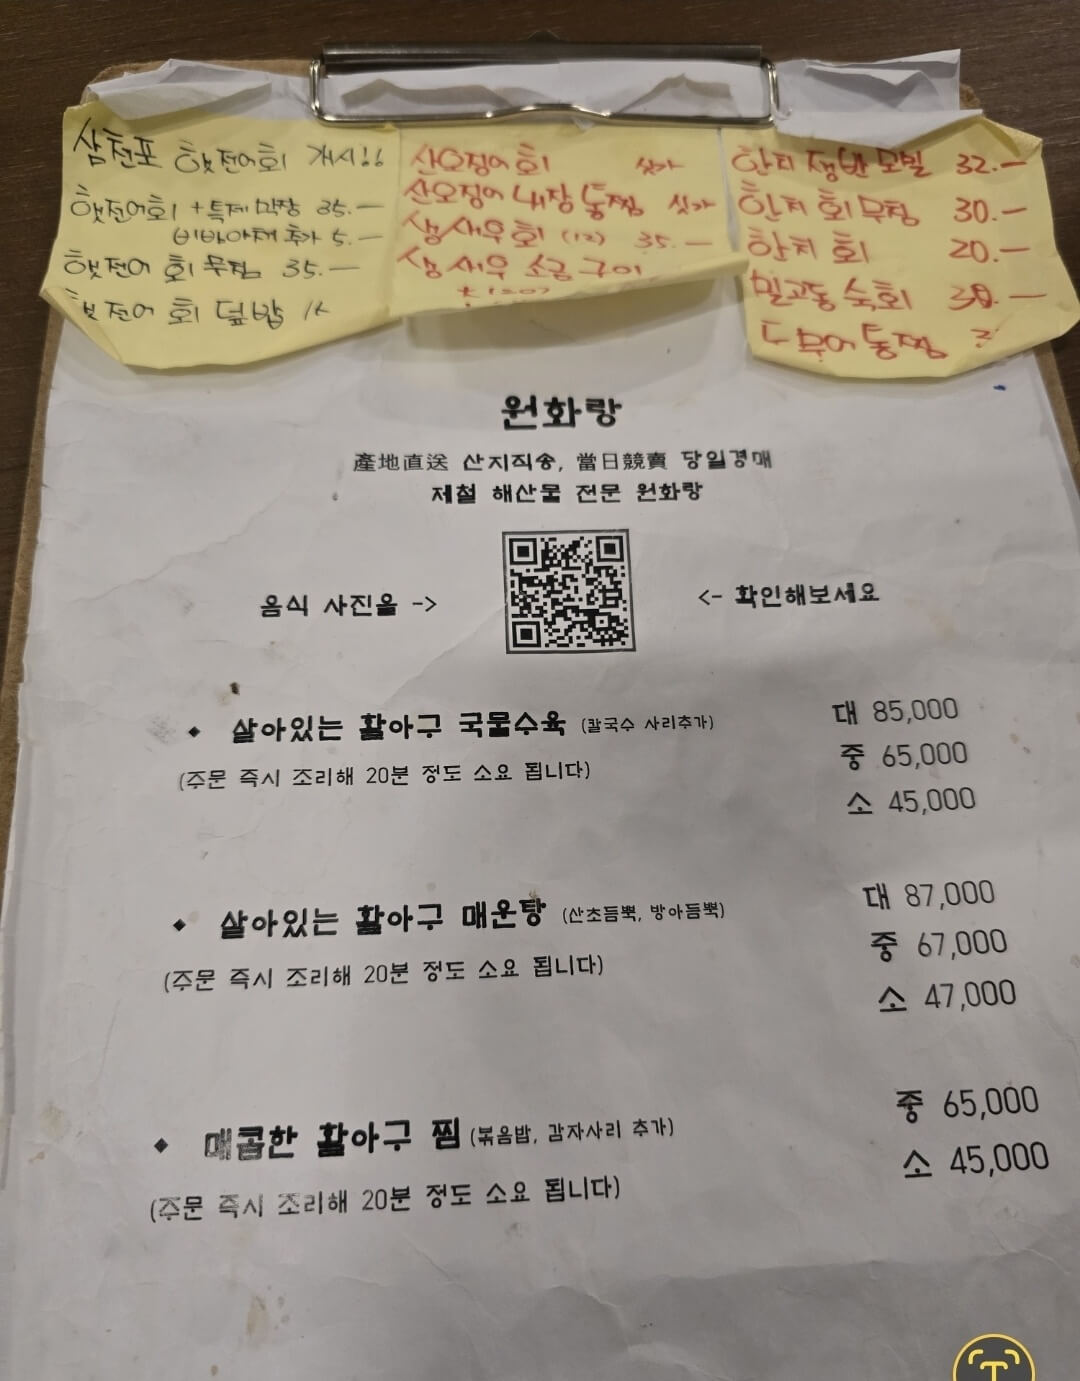 삼천포 햇전어회 개시!!
햇전어회 + 특제막장 35.-
비빔야채 추가 5.-
햇전어 회무침 35.-
햇전어 회 덮밥
산오징어회 싯가
산오징어 내장통찜 싯가
생새우회 (12) 35.-
생새우 소금구이
한치 쟁반모밀 32.-
한치 회무침 30.-
한치회 20.-
밀고동 숙회
두부어통찜
원화랑
産地直送 산지직송, 當日競賣 당일경매
제철 해산물 전문 원화랑
음식 사진을 -> <- 확인해보세요
◆ 살아있는 활아구 국물수육 (칼국수 사리추가) 대 85,000
(주문 즉시 조리해 20분 정도 소요 됩니다) 중 65,000
소 45,000
◆ 살아있는 활아구 매운탕 (산초듬뿍, 방아듬뿍) 대 87,000
(주문 즉시 조리해 20분 정도 소요 됩니다) 중 67,000
소 47,000
◆ 매콤한 활아구 찜 (볶음밥, 감자사리 추가) 중 65,000
(주문 즉시 조리해 20분 정도 소요 됩니다) 소 45,000